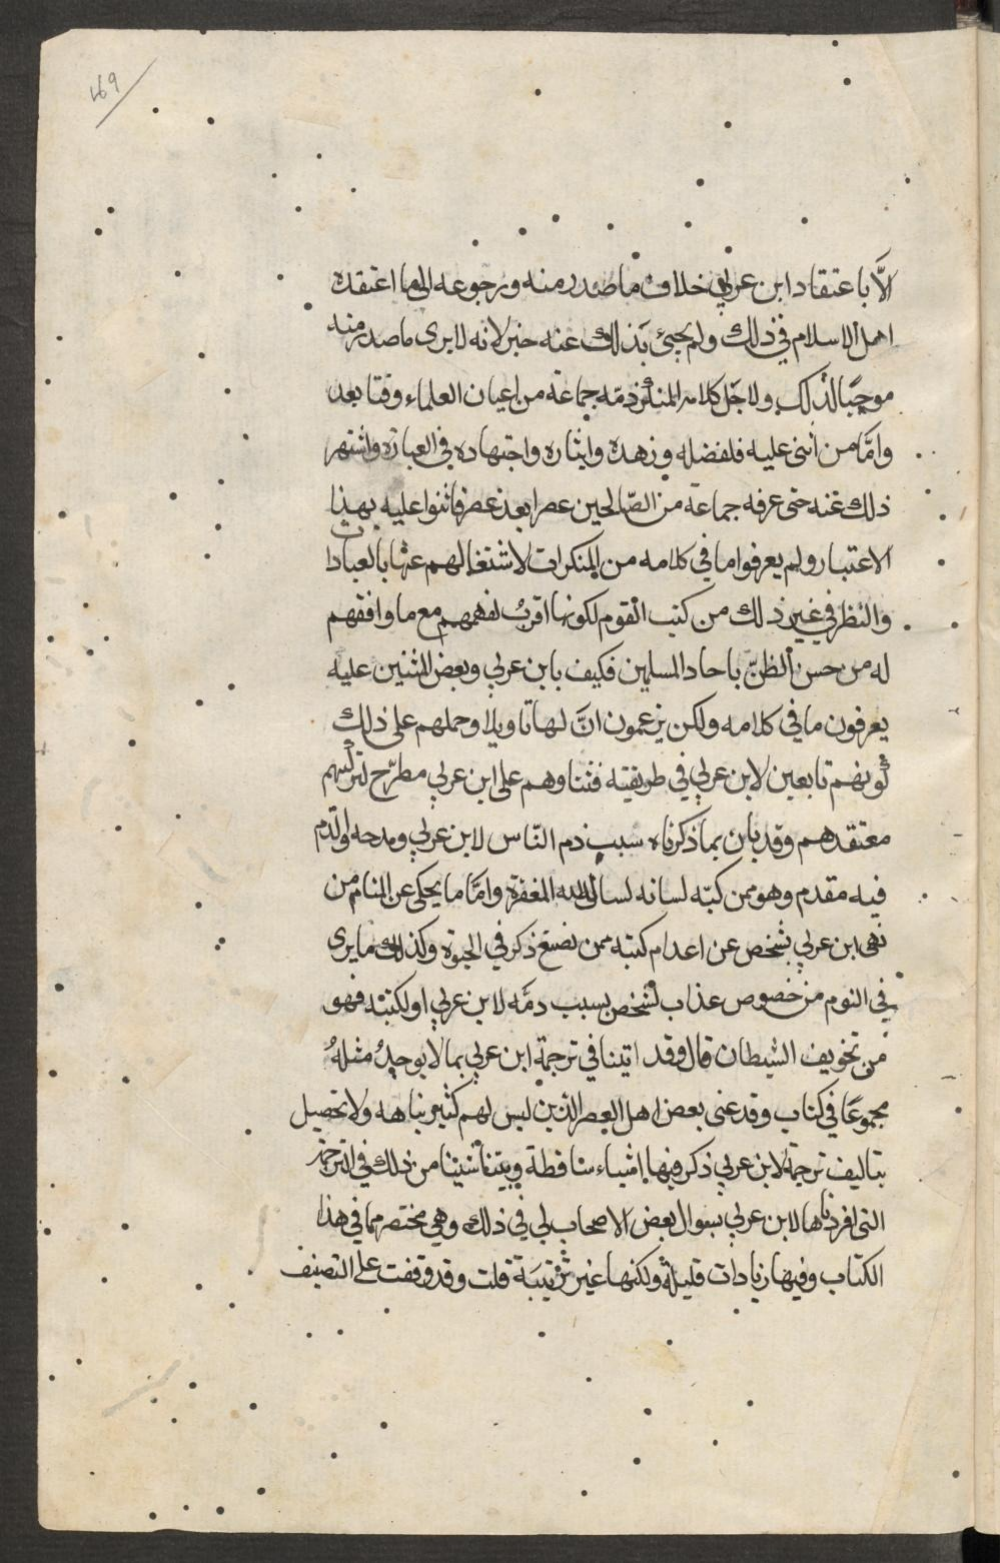 ٤٦٩
الَّا باعتقاد ابن عربي خلاف ما صدر منه ورجوعه الى ما اعتقده
اهل الاسلام في ذلك ولم يجئ بذلك عنه خبر لانه لا يرى ما صدر منه
موجبًا لذلك ولاجل كلامه المنكر ذمّه جماعة من اعيان العلماء وقتا بعد
وامّا من اثنى عليه فلفضله وزهده وايثاره واجتهاده في العبادة واشتهر
ذلك عنه حتى عرفه جماعة من الصّالحين عصرا بعد عصر فاثنوا عليه بهذا
الاعتبار ولم يعرفوا ما في كلامه من المنكرات لاشتغالهم عنها بالعبادات
والنظر في غير ذلك من كتب القوم لكونها اقرب لفهمهم مع ما وافقهم
له من حسن الظنّ باحاد المسلمين فكيف بابن عربي وبعض المثنين عليه
يعرفون ما في كلامه ولكن يزعمون انَّ لها تاويلا وحملهم على ذلك
كونهم تابعين لابن عربي في طريقته فثناوهم على ابن عربي مطرّح لتزكيتهم
معتقدهم وقد بان بما ذكرناه سبب ذم النّاس لابن عربي ومدحه والذم
فيه مقدم وهو ممن كبّه لسانه نسال الله المغفرة وامّا ما يحكى عن المنام من
نهى ابن عربي بشخص عن اعدام كتبه ممن نضع ذكر في الحيوة وكذلك ما يرى
في النوم من خصوص عذاب لشخص بسبب دمّه لابن عربي او لكتبه فهو
من تخويف الشيطان قال وقد اتينا في ترجمة ابن عربي بما لا يوجد مثله
مجموعًا في كتاب وقد عنى بعض اهل العصر الذين ليس لهم كثير نباهه ولا تحصيل
بتاليف ترجمة لابن عربي ذكر فيها اشياء ساقطة وبيّنا شيئا من ذلك في الترجمة
التى افردناها لابن عربي بسوال بعض الاصحاب لي في ذلك وهي مختصر مما في هذا
الكتاب وفيها زيادات قليلة ولكنها غير مرتبة قلت وقد وقفت على التصنيف